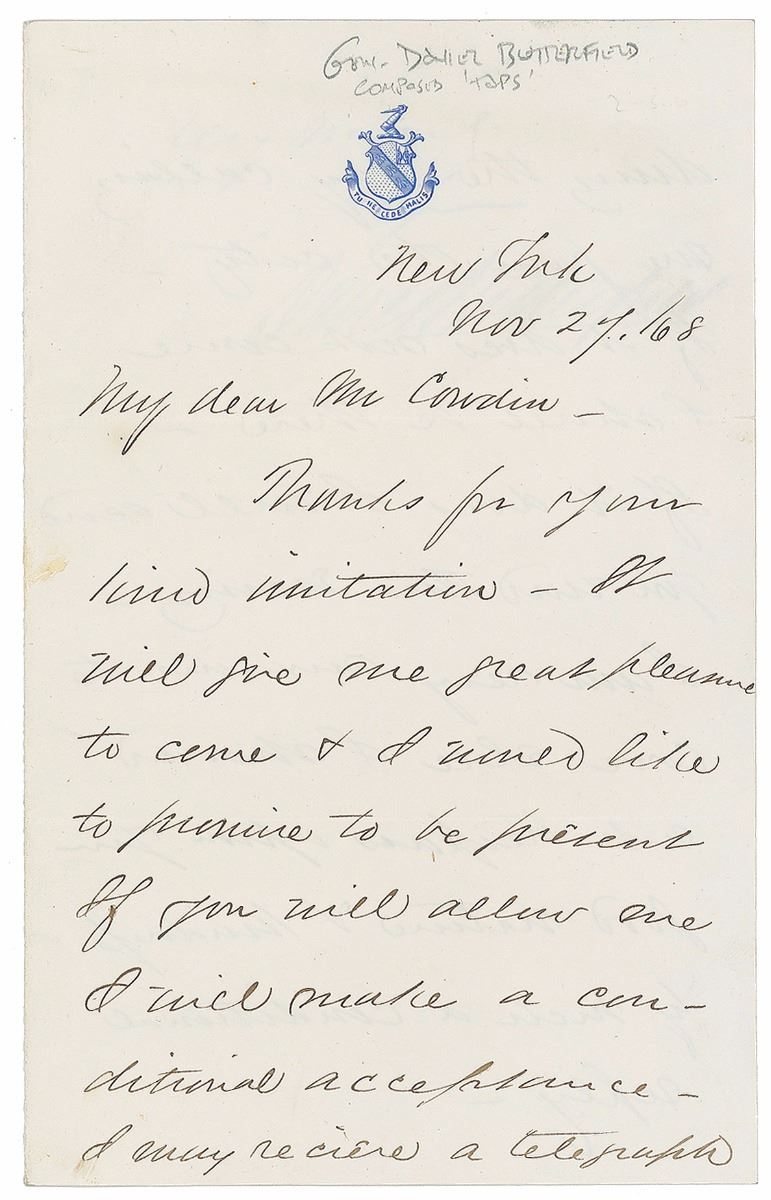 Gen. Daniel Butterfield
composed 'Taps'
TU NE CEDE MALIS
New York
Nov 27. /68
My dear Mr Cowdin –
Thanks for your
kind invitation – It
will give me great pleasure
to come & I would like
to promise to be present
If you will allow me
I will make a con-
ditional acceptance –
I may recieve a telegraph